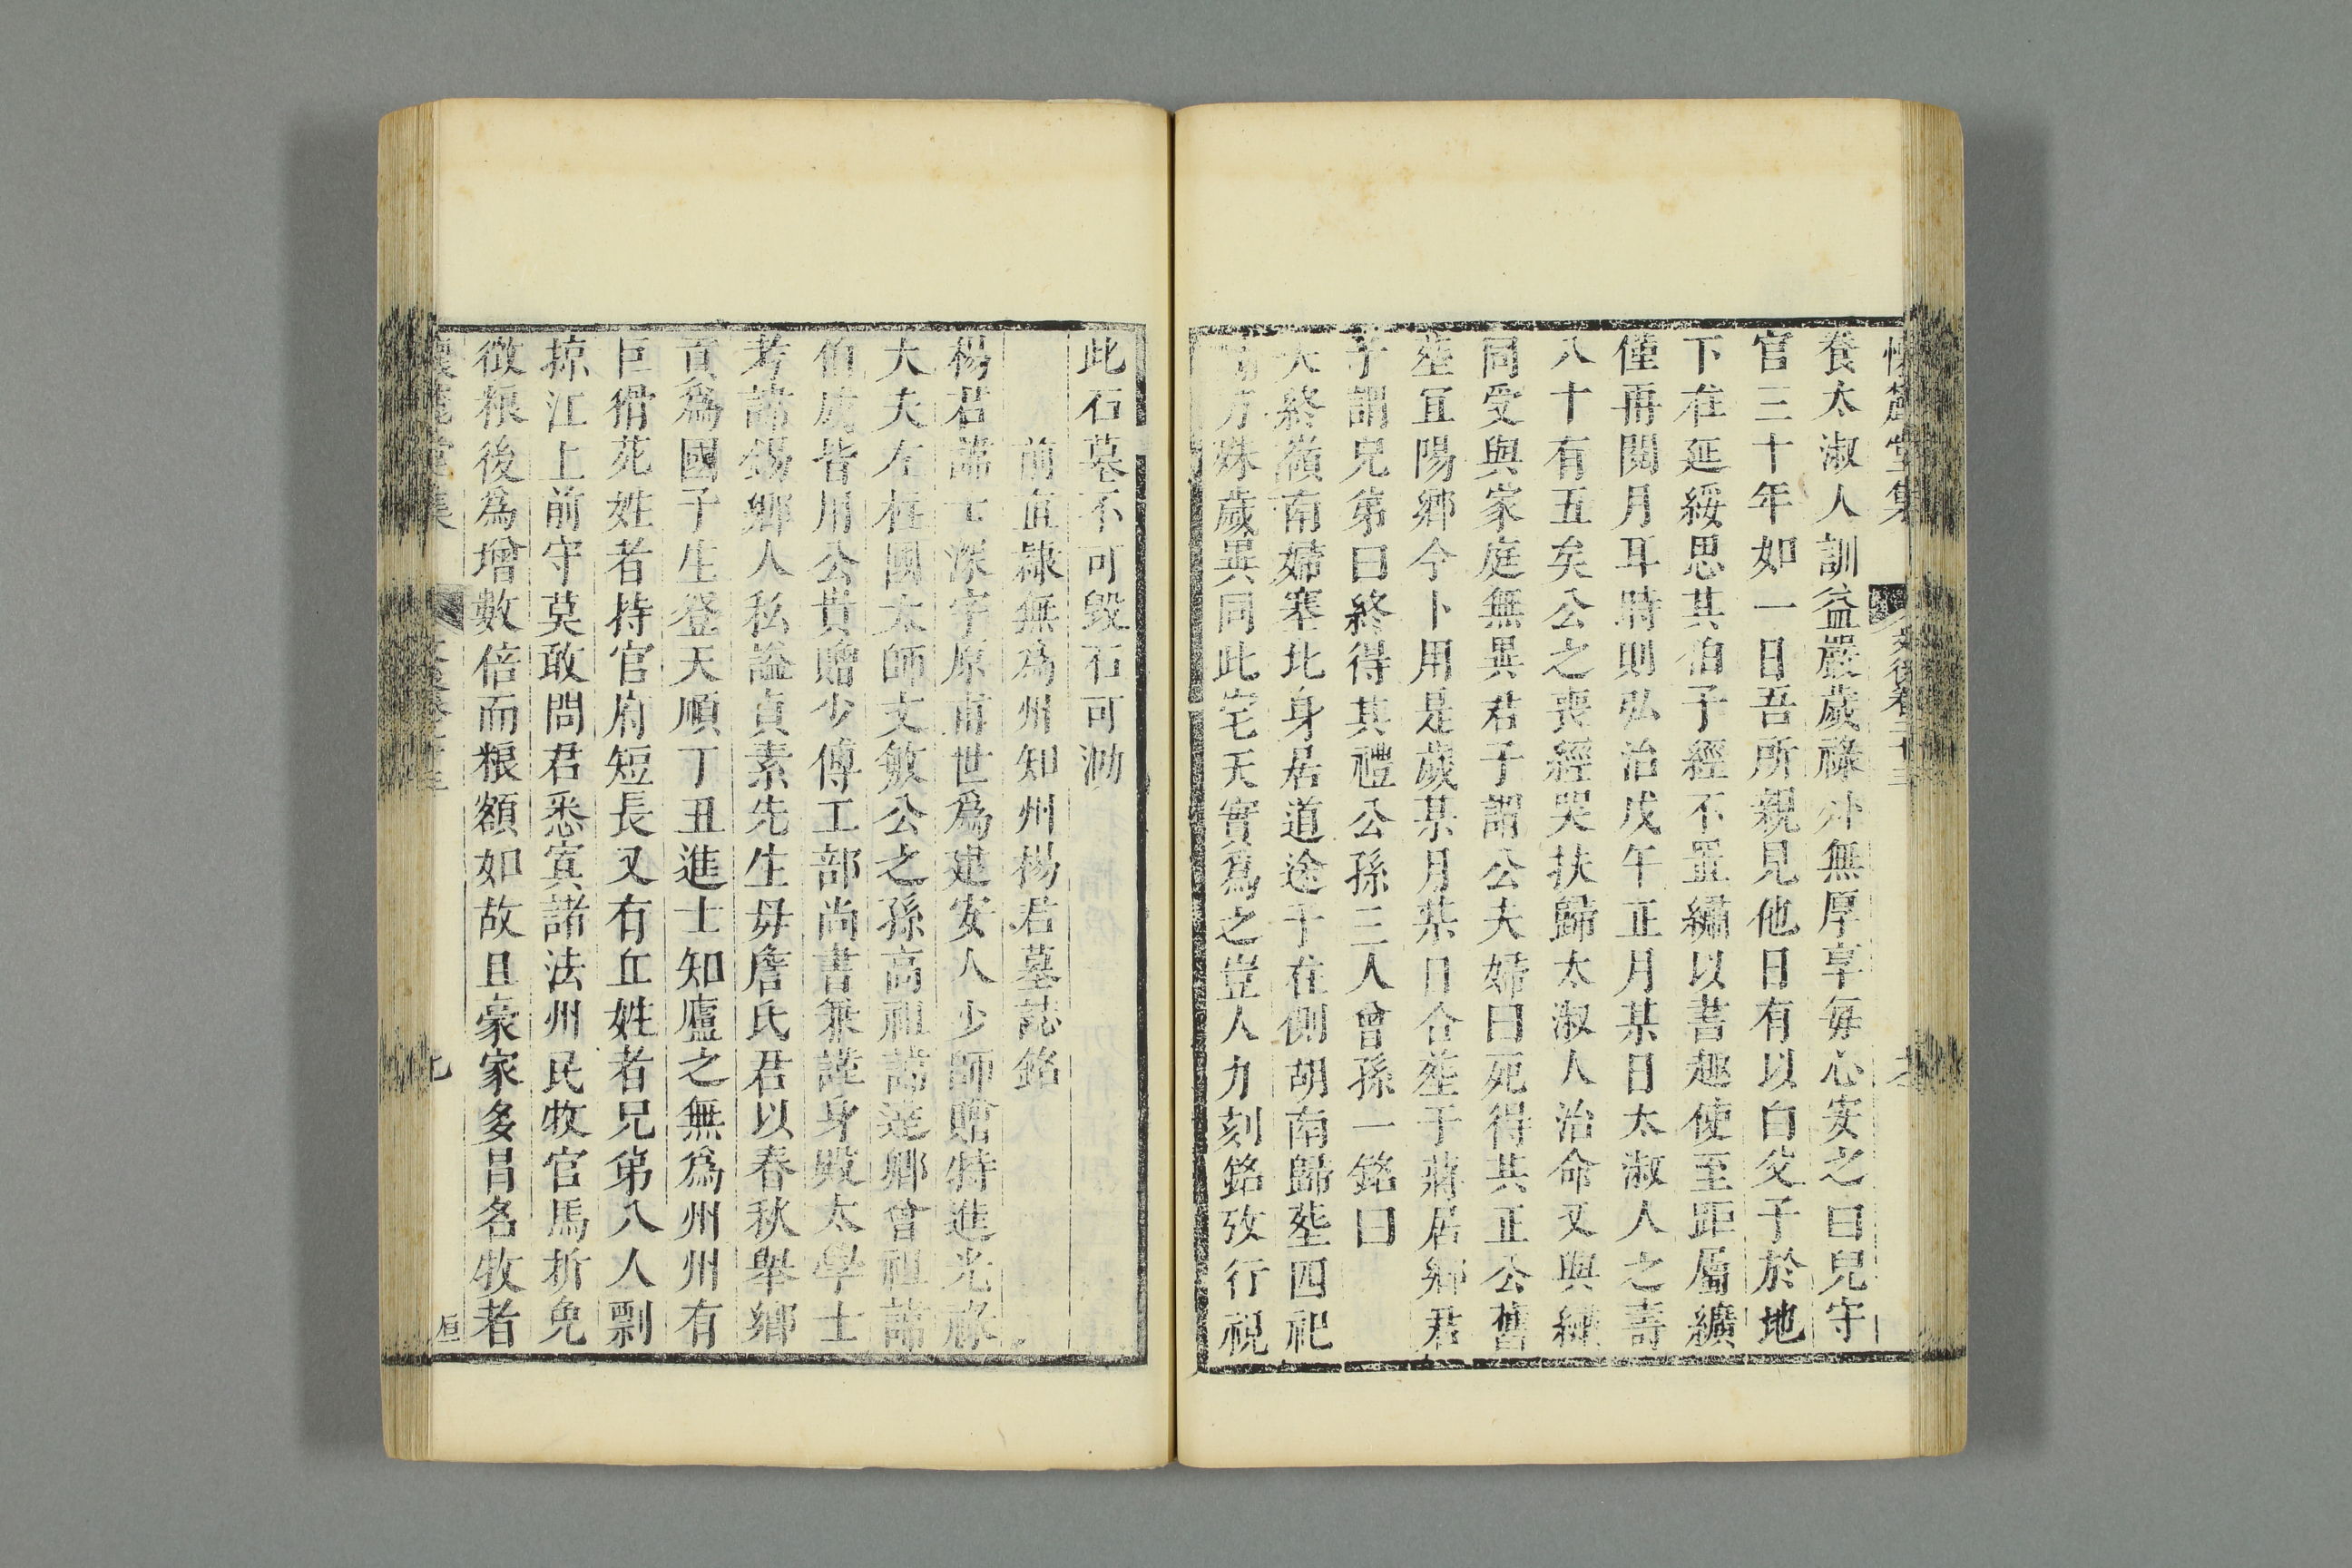 懷麓堂集 文後卷二十三
養太淑人訓益嚴歲祿外無厚享每心安之曰兒守
官三十年如一日吾所親見他日有以白父子於地
下在延綏思其伯子經不置繡以書趣使至距屬纊
僅再閱月耳時則弘治戊午正月某日太淑人之壽
八十有五矣公之喪經哭扶歸太淑人治命又與繡
同受與家庭無異君子謂公夫婦曰死得其正公舊
塋宜陽鄉今卜用是歲某月某日合塟于蔣居鄉君
子謂兄弟曰終得其禮公孫三人曾孫一銘曰
夫終瀕南婦塞北身居道途子在側胡南歸塟四祀
方殊歲異同此宅天實爲之豈人力刻銘攷行視
此石墓不可毀石可泐
前直隸無爲州知州楊君墓誌銘
楊君諱士深字原甫世爲建安人少師贈特進光祿
大夫左柱國太師文敏公之孫高祖諱達卿曾祖諱
伯成皆用公貴贈少傅工部尚書兼謹身殿太學士
考諱錫鄉人私謚貞素先生毋詹氏君以春秋舉鄉
貢爲國子生登天順丁丑進士知廬之無爲州州有
巨猾苑姓者持官府短長又有丘姓者兄弟八人剽
掠江上前守莫敢問君悉寘諸法州民牧官馬折免
徵粮後爲增數倍而粮額如故且豪家多冒名牧者
懷麓堂集